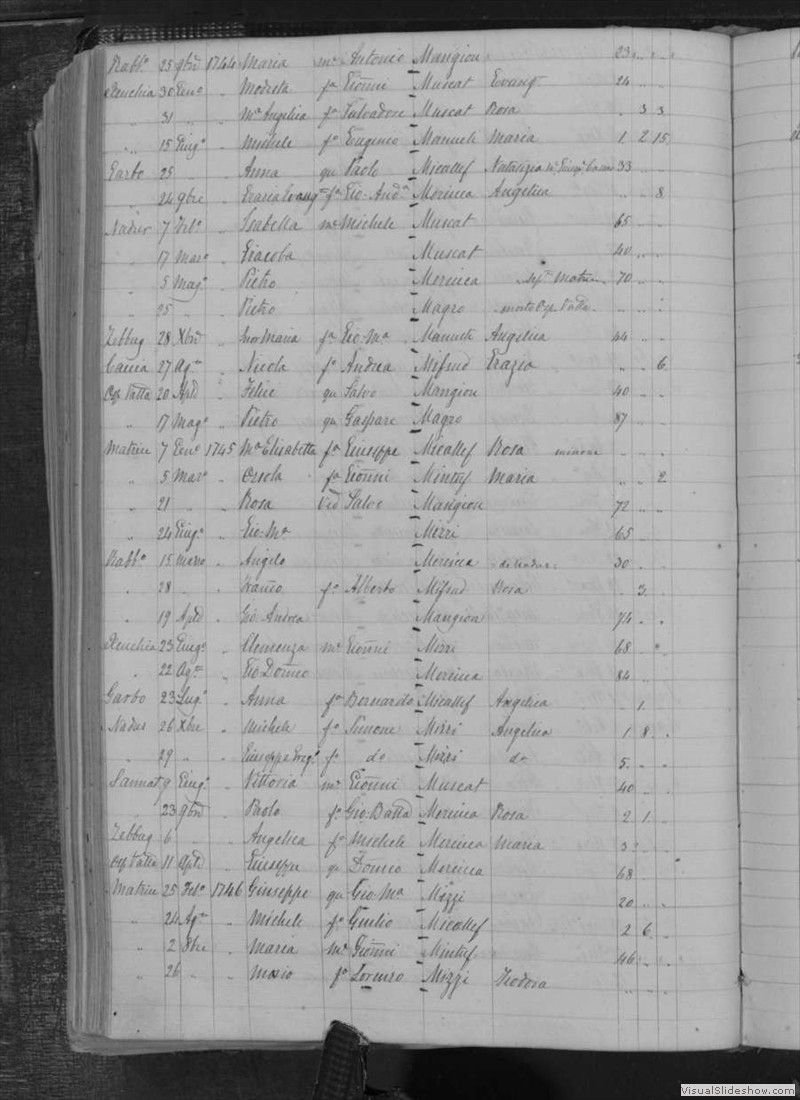 Rabb.o 25 9bre 1744 Maria me Antonio Mangion 23 .. ..
Xeuchia 30 Genо .. Modesta fa Gionni Muscat Evang.a 24 .. ..
.. 31 .. .. Ma Angelica fa Salvadore Muscat Rosa .. 3 3
.. 15 Giug.o .. Michele fo Eugenio Manueli Maria 1 2 15
Garbo 25 .. .. Anna qu Paolo Micallef Natalizia 33 .. ..
.. 24 9bre .. fa Gio: And.a Moreina Angelica .. .. 8
Nadur 7 Feb.o .. Isabella me Michele Muscat 65 .. ..
.. 17 Mar.o .. Giacoba Muscat 40 .. ..
.. 5 Mag.o .. Pietro Moreina 70 .. ..
.. 25 .. .. Pietro Magro .. .. ..
Zebbug 28 Xbre .. Maria fa Gio: Ma Manueli Angelica 44 .. ..
Caccia 27 Ag.to .. Nicola fo Andrea Mifsud Grazia .. .. 6
20 Aple .. Felice qu Salvo Mangion 40 .. ..
.. 17 Mag.o .. Pietro qu Gaspare Magro 87 .. ..
Matrice 7 Gen.o 1745 Ma Elisabetta fa Giuseppe Micallef Rosa minore .. .. ..
.. 5 Mar.o .. Orsola fa Gionni Mintuf Maria .. .. 2
.. 21 .. .. Rosa Ved Salvo Mangion 72 .. ..
.. 24 Giug.o .. Gio: Ma Mizzi 65 .. ..
Rabb.o 15 Marzo .. Angelo Moreina 30 .. ..
.. 28 .. .. fo Alberto Mifsud Rosa .. 3 ..
.. 19 Aple .. Gio: Andrea Mangion 74 .. ..
Xeuchia 23 Giug.o .. Clemenza me Gionni Mizzi 68 .. ..
.. 22 Ag.to .. Gio Dom.co Moreina 84 .. ..
Garbo 23 Lug.o .. Anna fa Bernardo Micallef Angelica .. 1 ..
Nadur 26 Xbre .. Michele fo Simone Mizzi Angelica 1 8 ..
.. 29 .. .. Giuseppe fo do Mizzi do 5 .. ..
Sannat 9 Giug.o .. Vittoria me Gionni Muscat 40 .. ..
.. 23 9bre .. Paolo fo Gio: Batta Moreina Rosa 2 1 ..
Zebbug 6 .. .. Angelica fa Michele Moreina Maria 3 .. ..
11 Aple .. Giuseppe qu Dom.co Moreina 68 .. ..
Matrice 25 Feb.o 1746 Giuseppe qu Gio: Ma Mizzi 20 .. ..
.. 24 Ag.to .. Michele fo Giulio Micallef 2 6 ..
.. 2 8bre .. Maria me Gionni Mintuf 46 .. ..
.. 26 .. .. Mario fo Lorenzo Mizzi Teodora .. .. ..
VisualSlideshow.com